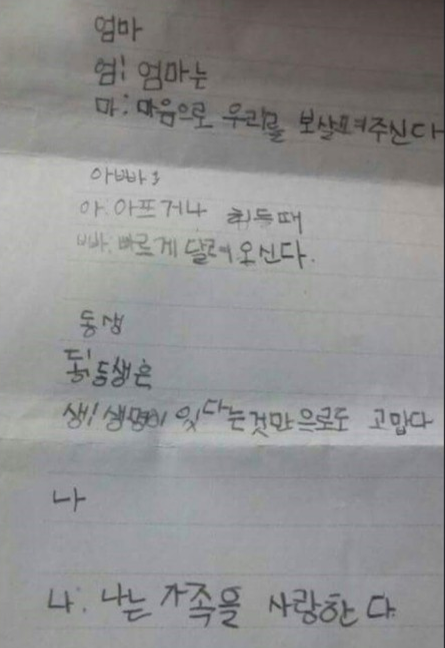 엄마
엄: 엄마는
마: 마음으로 우리를 보살펴주신다
아빠:
아: 아프거나 힘들때
빠: 빠르게 달려오신다.
동생
동: 동생은
생: 생명이 있다는것만으로도 고맙다
나
나: 나는 가족을 사랑한다